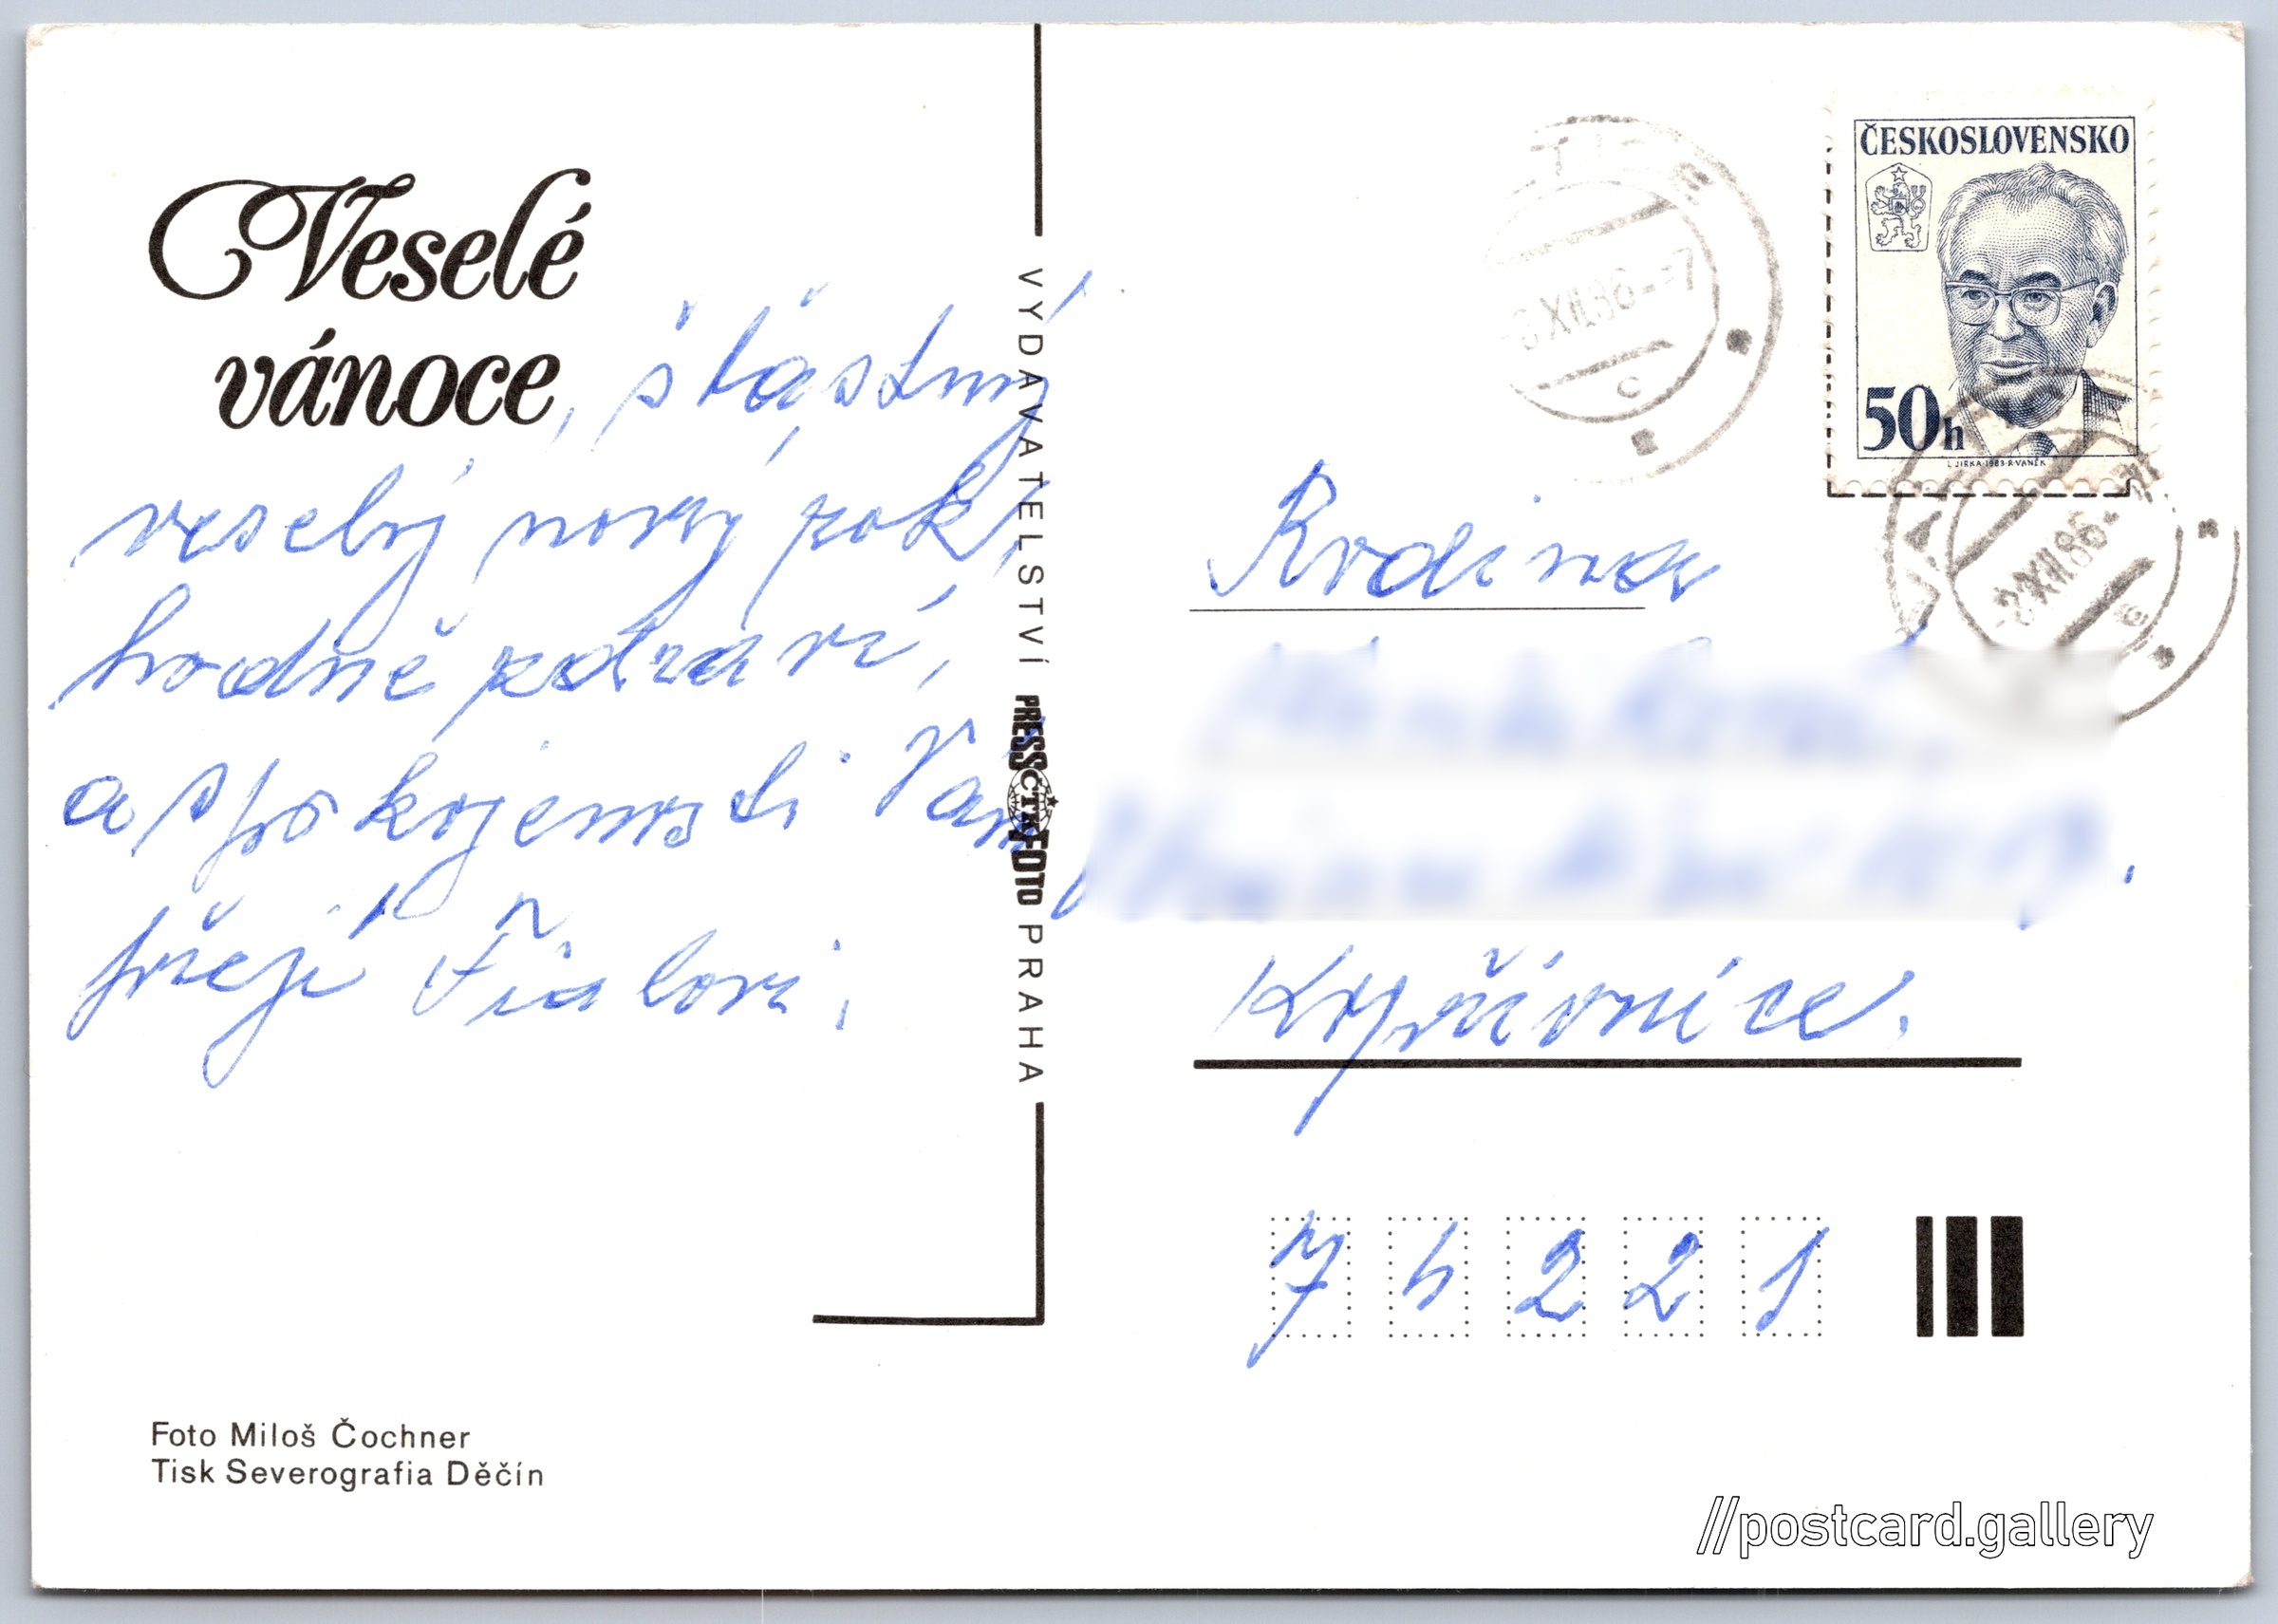 Veselé
vánoce, šťastný
veselý nový rok,
hodně zdraví,
a spokojenosti Vám
přejí Fialovi,
VYDAVATELSTVÍ PRESSFOTO PRAHA
ČTK
ČESKOSLOVENSKO
50h
L. JIRKA-1983-R. VANĚK
XII.86--7
C
XII.86
Rodina
Kopřivnice.
74221
Foto Miloš Čochner
Tisk Severografia Děčín
//postcard.gallery